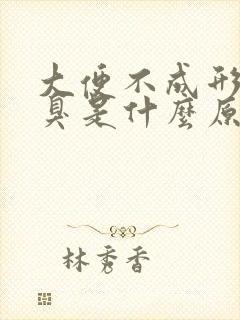 大便不成形
臭是什麼原
林秀香